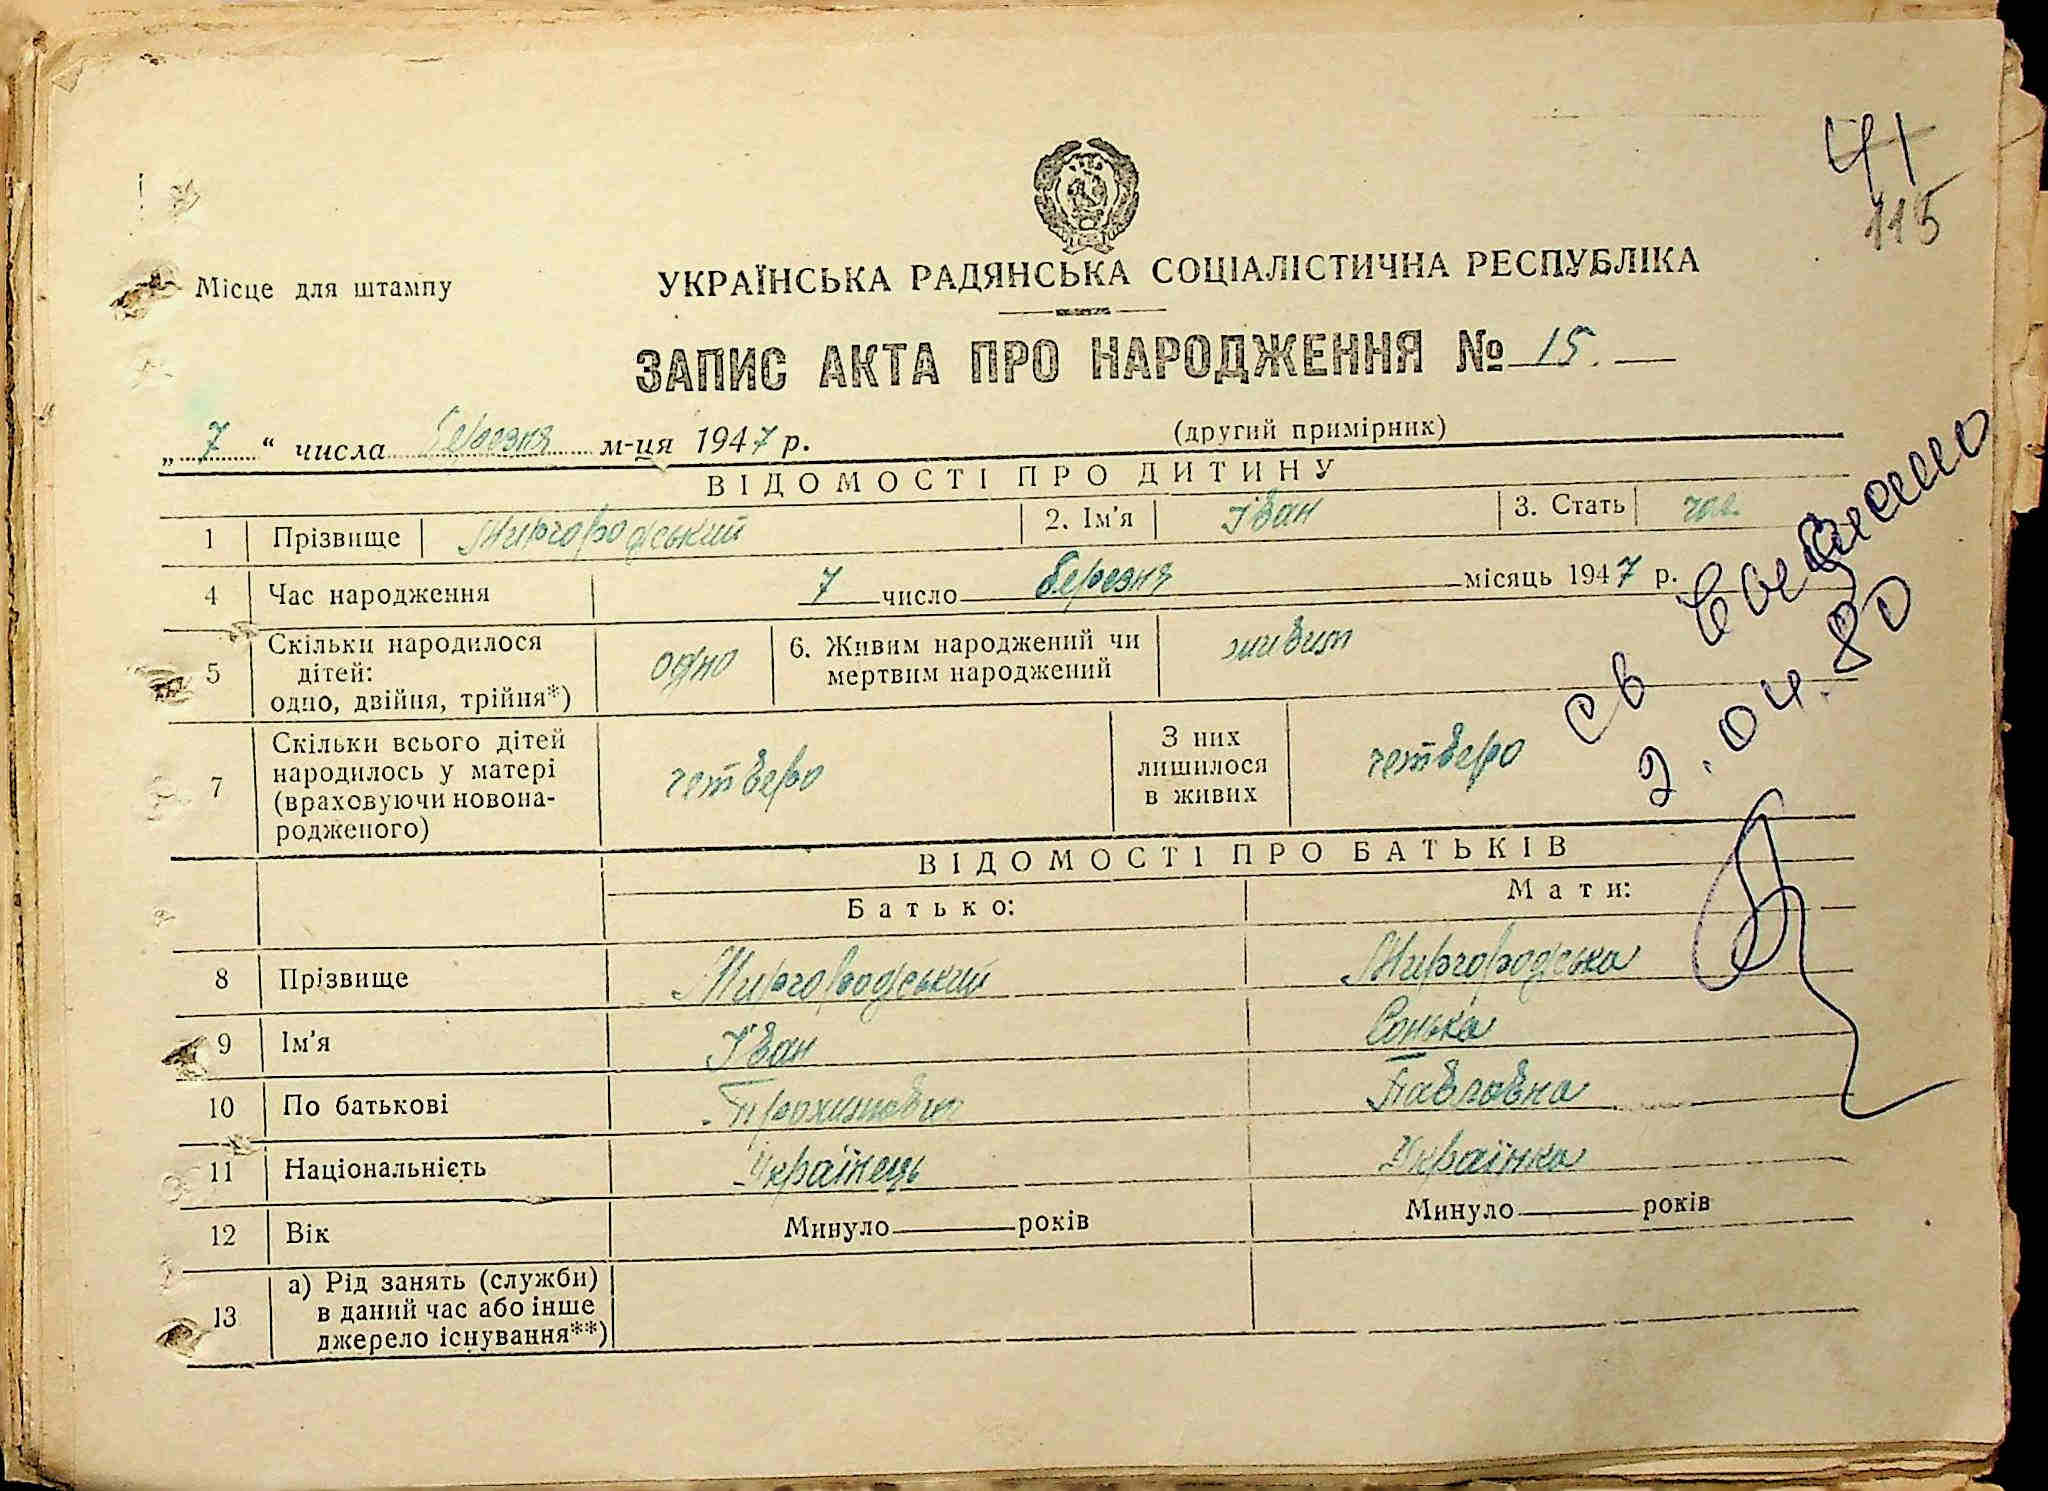 41
115
Місце для штампу
УКРАЇНСЬКА РАДЯНСЬКА СОЦІАЛІСТИЧНА РЕСПУБЛІКА
ЗАПИС АКТА ПРО НАРОДЖЕННЯ № 15.
„ 7 “ числа березня м-ця 1947 р.
(другий примірник)
ВІДОМОСТІ ПРО ДИТИНУ
1 Прізвище Миргородський 2. Ім'я Іван 3. Стать чол.
4 Час народження 7 число березня місяць 1947 р.
5 Скільки народилося дітей: одно, двійня, трійня*) одно 6. Живим народжений чи мертвим народжений живим
7 Скільки всього дітей народилось у матері (враховуючи новонародженого) четверо З них лишилося в живих четверо
2.04.80
ВІДОМОСТІ ПРО БАТЬКІВ
Батько: Мати:
8 Прізвище Миргородський Миргородська
9 Ім'я Іван Сонька
10 По батькові Павловна
11 Національність Українець Українка
12 Вік Минуло років Минуло років
13 а) Рід занять (служби) в даний час або інше джерело існування**)